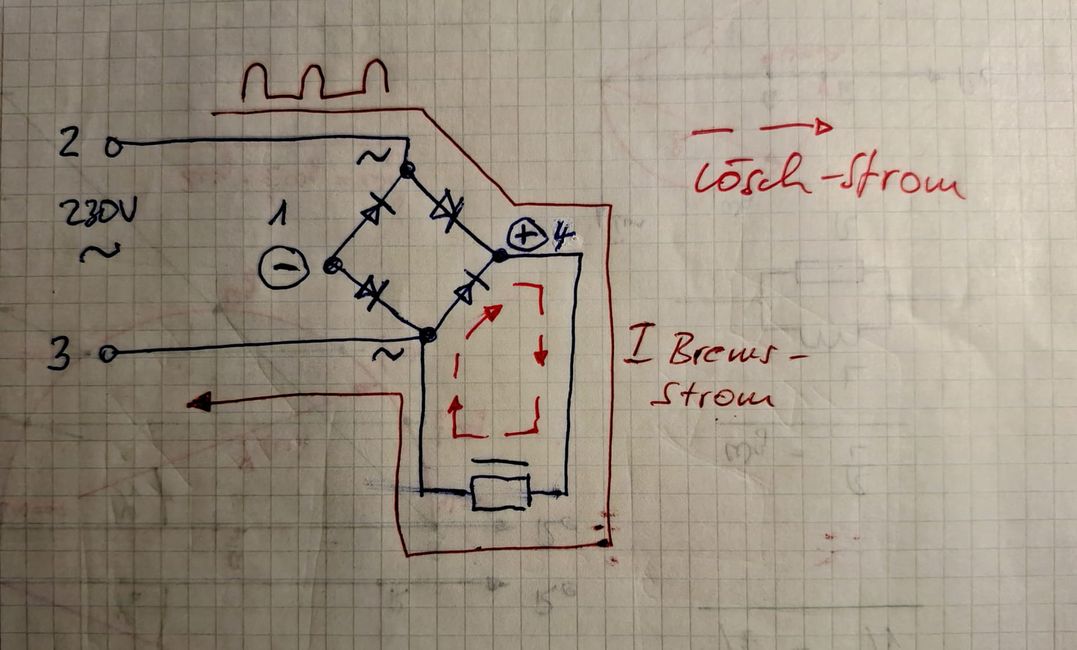 2
~
230V
1
~
⊖
⊕ 4
3
~
Lösch-Strom
I Brems-
Strom